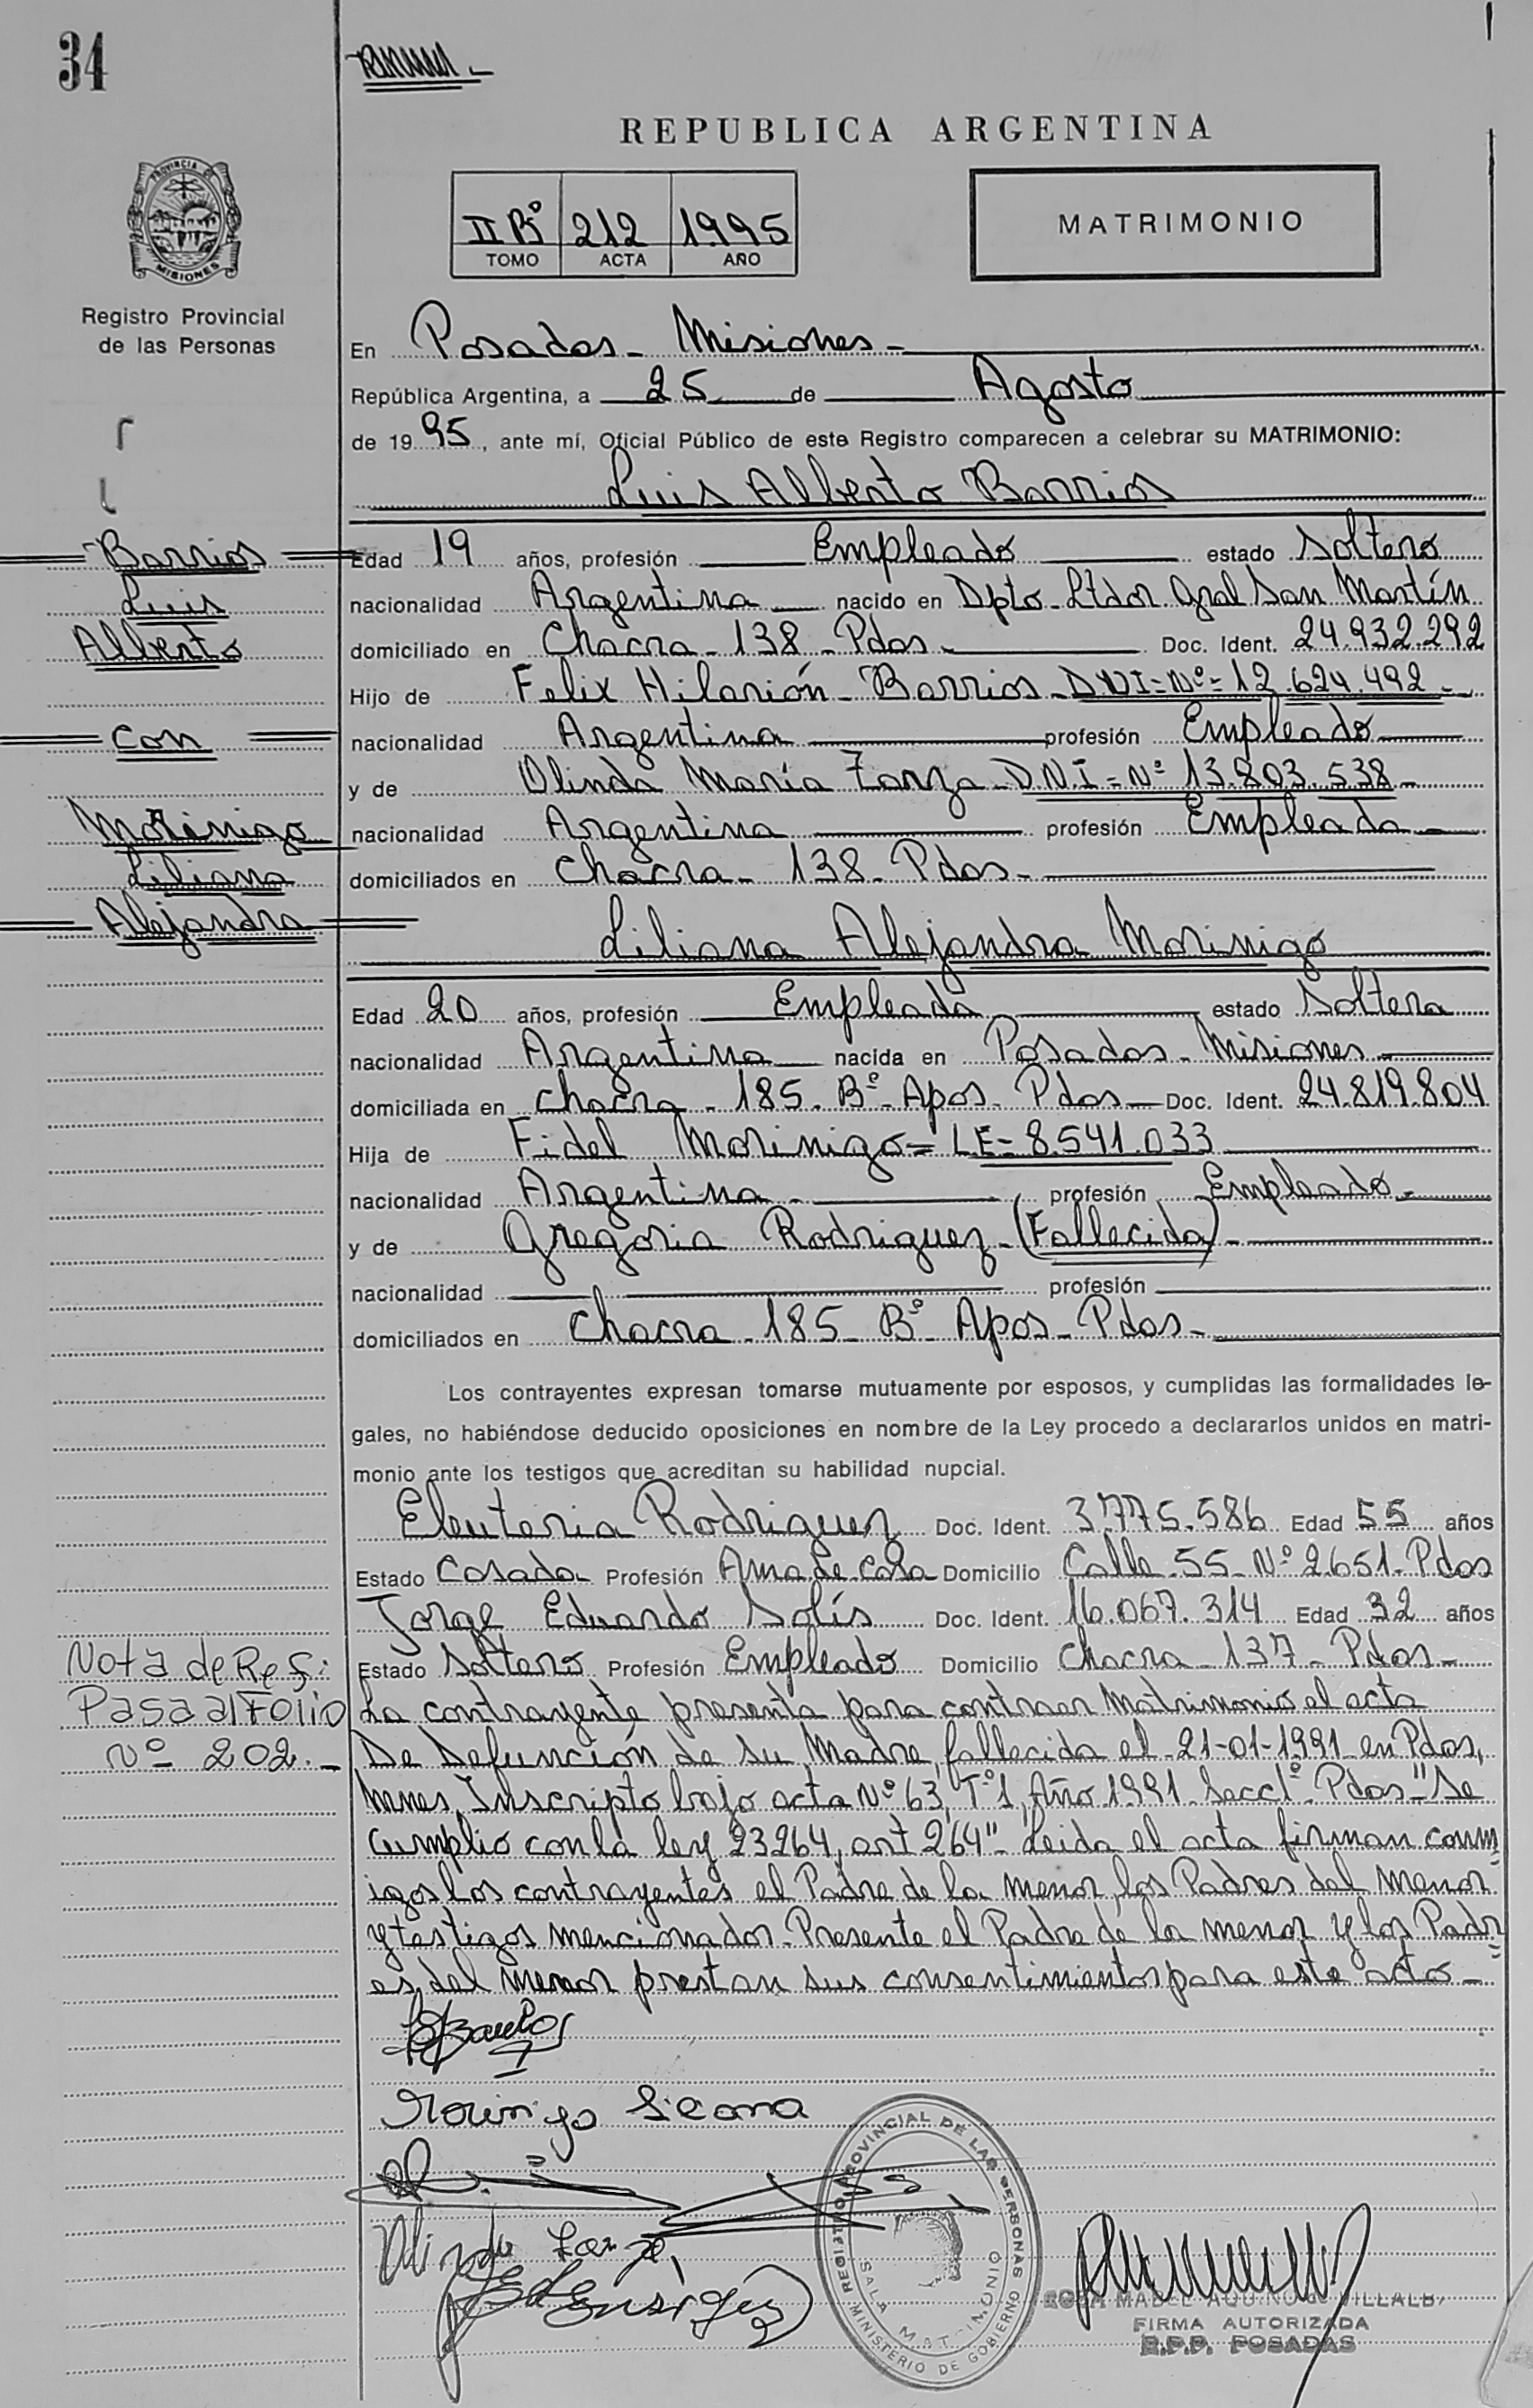 34
REPUBLICA ARGENTINA
PROVINCIA DE
MISIONES
Registro Provincial
de las Personas
II Bº 212 1995
TOMO ACTA AÑO
MATRIMONIO
En Posadas - Misiones -
República Argentina, a 25 de Agosto
de 19 95, ante mí, Oficial Público de este Registro comparecen a celebrar su MATRIMONIO:
Luis Alberto Barrios
Barrios
Luis
Alberto
con
Morinigo
Liliana
Alejandra
Edad 19 años, profesión Empleado estado Soltero
nacionalidad Argentina nacido en Dpto. Ltdor. Gral San Martín
domiciliado en Chacra - 138 - Pdas - Doc. Ident. 24.932.292
Hijo de Felix Hilarión - Barrios - DNI = Nº = 12.624.492 -
nacionalidad Argentina profesión Empleado
y de Olinda María Zanza - D.N.I = Nº 13.803.538 -
nacionalidad Argentina profesión Empleada -
domiciliados en Chacra - 138 - Pdas -
Liliana Alejandra Morinigo
Edad 20 años, profesión Empleada estado Soltera
nacionalidad Argentina nacida en Posadas - Misiones -
domiciliada en Chacra - 185 - Bº - Apos - Pdas - Doc. Ident. 24.819.804
Hija de Fidel Morinigo = LE = 8.541.033
nacionalidad Argentina - profesión Empleado -
y de Gregoria Rodriguez - (Fallecida) -
nacionalidad profesión
domiciliados en Chacra - 185 - Bº - Apos - Pdas -
Los contrayentes expresan tomarse mutuamente por esposos, y cumplidas las formalidades le-
gales, no habiéndose deducido oposiciones en nombre de la Ley procedo a declararlos unidos en matri-
monio ante los testigos que acreditan su habilidad nupcial.
Eleuteria Rodriguez Doc. Ident. 3.775.586 Edad 55 años
Estado Casada - Profesión Ama de Casa Domicilio Calle - 55 - Nº 2651 - Pdas
Jorge Eduardo Solís Doc. Ident. 16.067.314 Edad 32 años
Estado Soltero Profesión Empleado Domicilio Chacra - 137 - Pdas -
Nota de Ref:
Pasa al Folio
Nº 202. -
La contrayente presenta para contraer Matrimonio el acta
De Defunción de su Madre, fallecida el 21-01-1991 en Pdas,
Mnes, Inscripto bajo acta Nº 63, Tº 1, Año 1991. Secc 1º Pdas - "Se
Cumplio con la ley 23264, art 264" - Leida el acta firman conm
igos los contrayentes el Padre de la menor, los Padres del Menor
y testigos mencionados. Presente el Padre de la menor y los Padr
es del menor prestan sus consentimientos para este acto -
Olinda Zanza
REGISTRO PROVINCIAL DE LAS PERSONAS
SALA MATRIMONIO
MINISTERIO DE GOBIERNO
ROSA MABEL AQUINO de VILLALBA
FIRMA AUTORIZADA
R.P.P. POSADAS